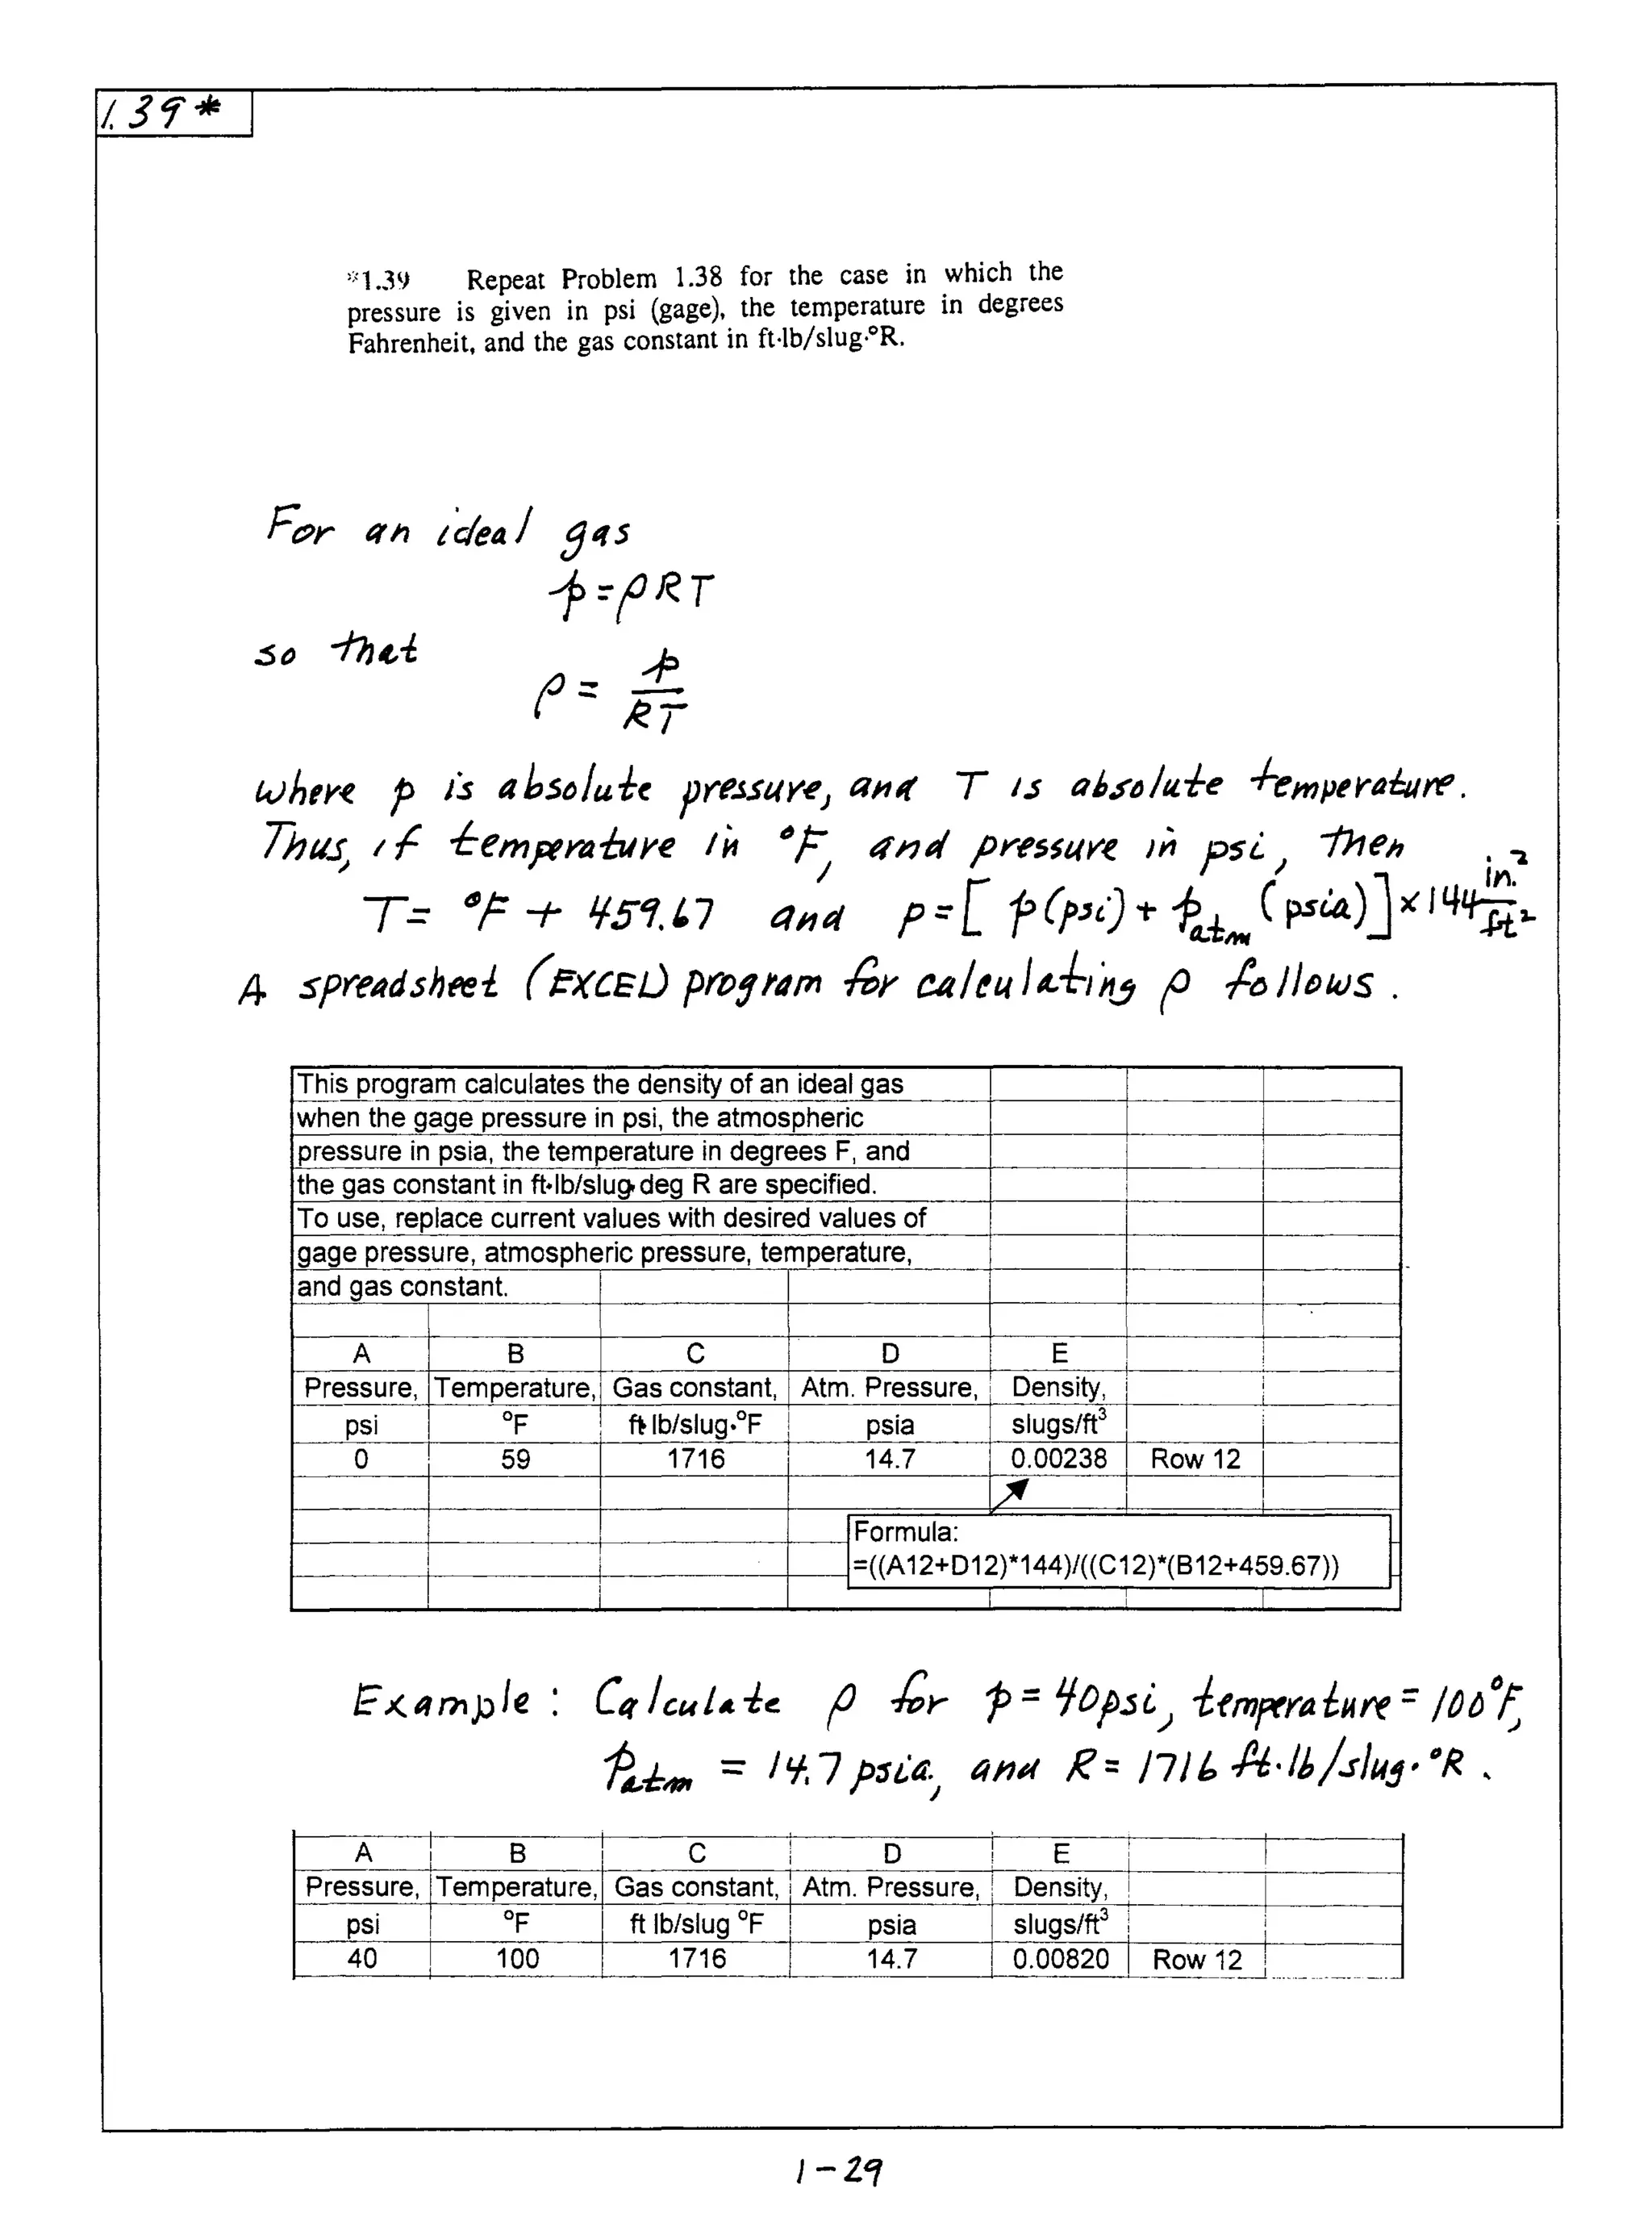 1.39*
*1.39 Repeat Problem 1.38 for the case in which the
pressure is given in psi (gage), the temperature in degrees
Fahrenheit, and the gas constant in ft·lb/slug·°R.
For an ideal gas
p = ρRT
so that
ρ = p/RT
where p is absolute pressure, and T is absolute temperature.
Thus, if temperature in °F, and pressure in psi, then
T = °F + 459.67 and p = [p(psi) + p_atm (psia)] × 144 in.²/ft²
A spreadsheet (EXCEL) program for calculating ρ follows.
This program calculates the density of an ideal gas
when the gage pressure in psi, the atmospheric
pressure in psia, the temperature in degrees F, and
the gas constant in ft·lb/slug·deg R are specified.
To use, replace current values with desired values of
gage pressure, atmospheric pressure, temperature,
and gas constant.
A B C D E
Pressure, Temperature, Gas constant, Atm. Pressure, Density,
psi °F ft·lb/slug·°F psia slugs/ft³
0 59 1716 14.7 0.00238 Row 12
Formula:
=((A12+D12)*144)/((C12)*(B12+459.67))
Example: Calculate ρ for p = 40 psi, temperature = 100°F,
p_atm = 14.7 psia, and R = 1716 ft·lb/slug·°R.
A B C D E
Pressure, Temperature, Gas constant, Atm. Pressure, Density,
psi °F ft lb/slug °F psia slugs/ft³
40 100 1716 14.7 0.00820 Row 12
1-29